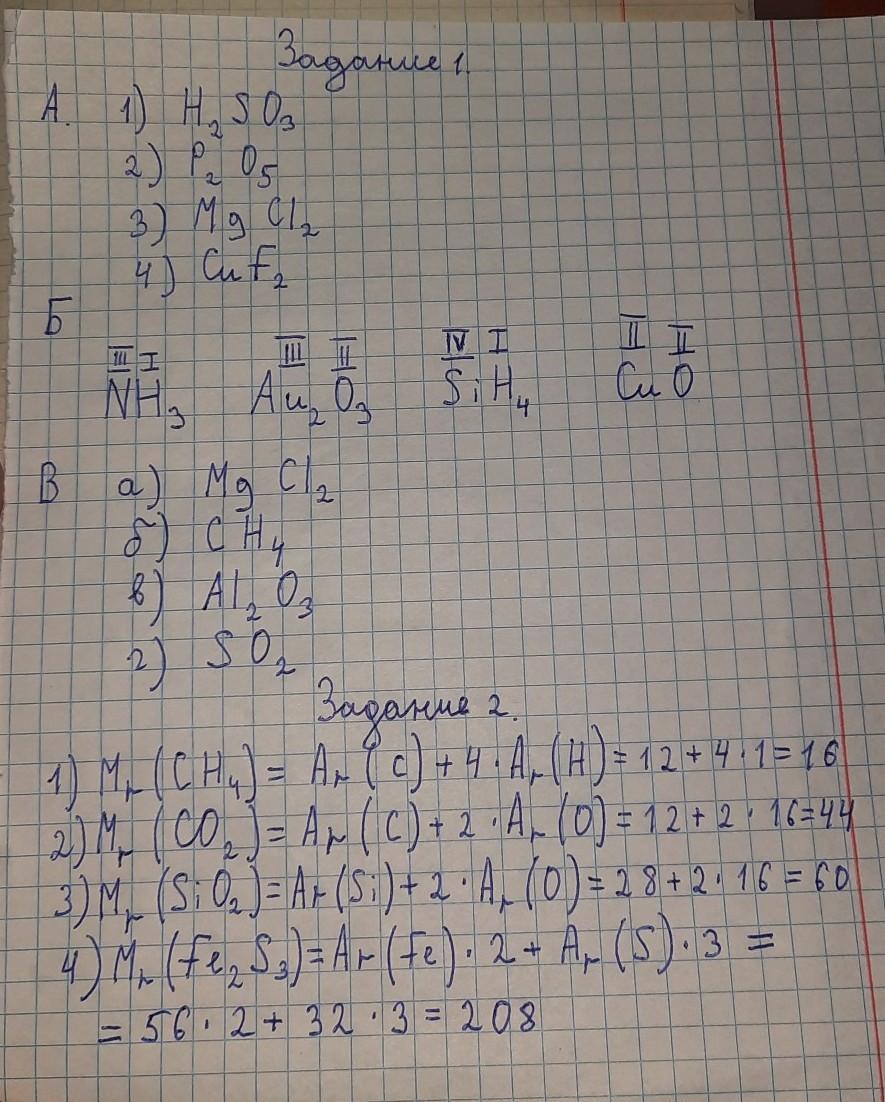 Задание 1.
А. 1) H₂SO₃
2) P₂O₅
3) MgCl₂
4) CuF₂
Б
III I III II IV I II II
NH₃ Au₂O₃ SiH₄ CuO
В а) MgCl₂
б) CH₄
в) Al₂O₃
г) SO₂
Задание 2.
1) Mr(CH₄) = Ar(C) + 4 · Ar(H) = 12 + 4 · 1 = 16
2) Mr(CO₂) = Ar(C) + 2 · Ar(O) = 12 + 2 · 16 = 44
3) Mr(SiO₂) = Ar(Si) + 2 · Ar(O) = 28 + 2 · 16 = 60
4) Mr(Fe₂S₃) = Ar(Fe) · 2 + Ar(S) · 3 =
= 56 · 2 + 32 · 3 = 208